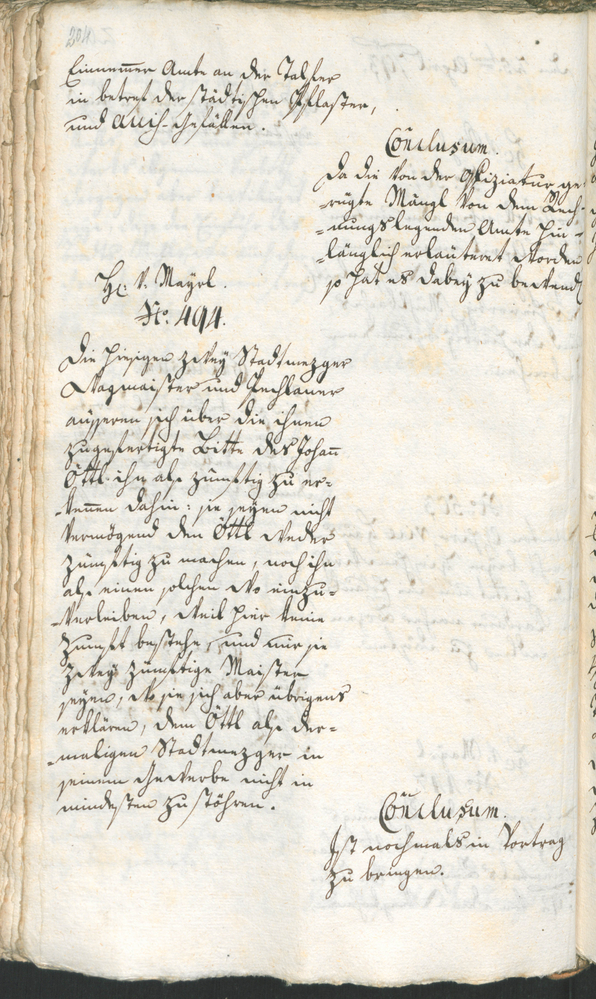 204
Einnemer Amte an der Talfer
in betref der städtischen Pflaster,
und Aufsch-Gefällen.
Conclusum.
Da die von der Offiziatur ge-
-rügte Mängl von dem Rech-
-nungslegenden Amte hin-
-länglich erläuteret worden
so hat es dabey zu
Hr. v. Mayrl.
No. 494.
Die hiesigen zwey Stadtmezger
Wagmaister und Pechlaner
äusseren sich über die ihnen
zugefertigte Bitte des Johañ
Öttl ihn als zünftig zu er-
-kennen dahin: sie seyen nicht
vermögend den Öttl weder
zünftig zu machen, noch ihn
als einen solchen wo einzu-
-verleiben, weil hier keine
Zunft bestehe, und nur sie
zwey zünftige Maister
seyen, wo sie sich aber übrigens
erklären, dem Öttl als der-
-maligen Stadtmezger in
seinem Gewerbe nicht in
mindesten zu stöhren.
Conclusum.
Ist nochmals in Vortrag
zu bringen.